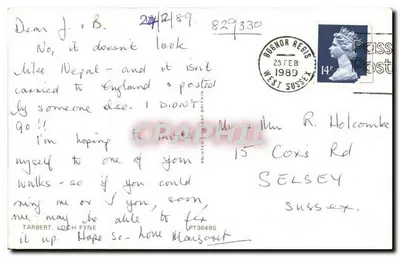 Dear J. & B. 24/2/89. 829330
No, it doesn't look
like Nepal - and it isn't
carried to England & posted
by someone else. I DIDN'T
go!!
I'm hoping to invite
myself to one of your
walks - so if you could
ring me or I you, soon,
we may be able to fix
it up. Hope so - Love Margaret
TARBERT, LOCH FYNE PT36485
PRINTED IN GREAT BRITAIN
BOGNOR REGIS
25 FEB
1989
WEST SUSSEX
14P
Post
Mr, Mrs R. Holcombe
15 Cox's Rd
SELSEY
SUSSEX.